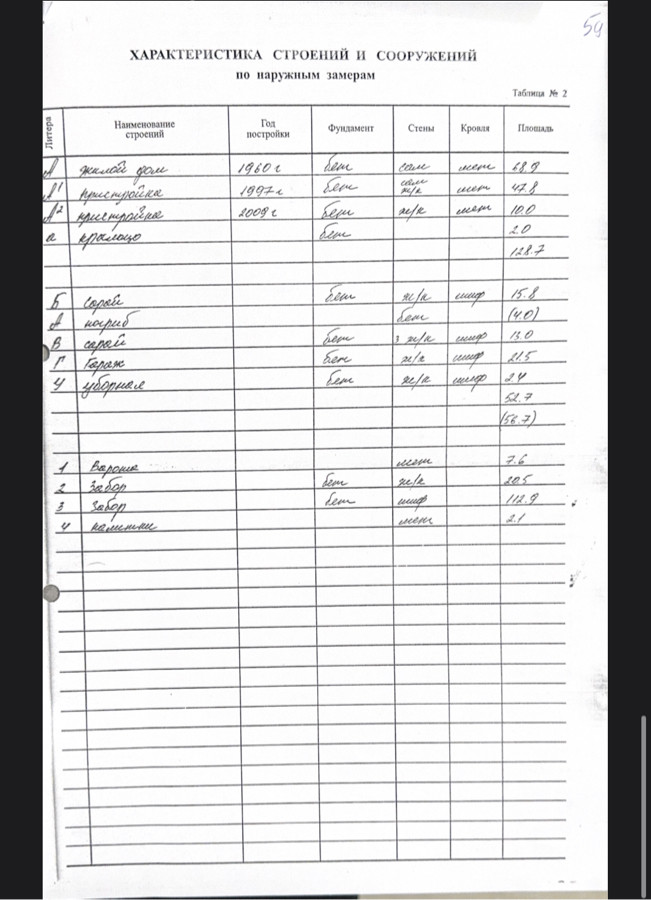 59
ХАРАКТЕРИСТИКА СТРОЕНИЙ И СООРУЖЕНИЙ
по наружным замерам
Таблица № 2
Литера Наименование строений Год постройки Фундамент Стены Кровля Площадь
А жилой дом 1960 г бет сам мет 68.9
А1 пристройка 1997 г бет сам ж/к мет 47.8
А2 пристройка 2009 г бет ж/к мет 10.0
а крыльцо бет 2.0
128.7
Б сарай бет ж/к шиф 15.8
А погриб бет (4.0)
В сарай бет 3 ж/к шиф 13.0
Г Гараж бет ж/к шиф 21.5
У уборная бет ж/к шиф 2.4
52.7
(56.7)
1 Ворота мет 7.6
2 Забор бет ж/к 20.5
3 Забор бет шиф 112.9
4 калитки мет 2.1